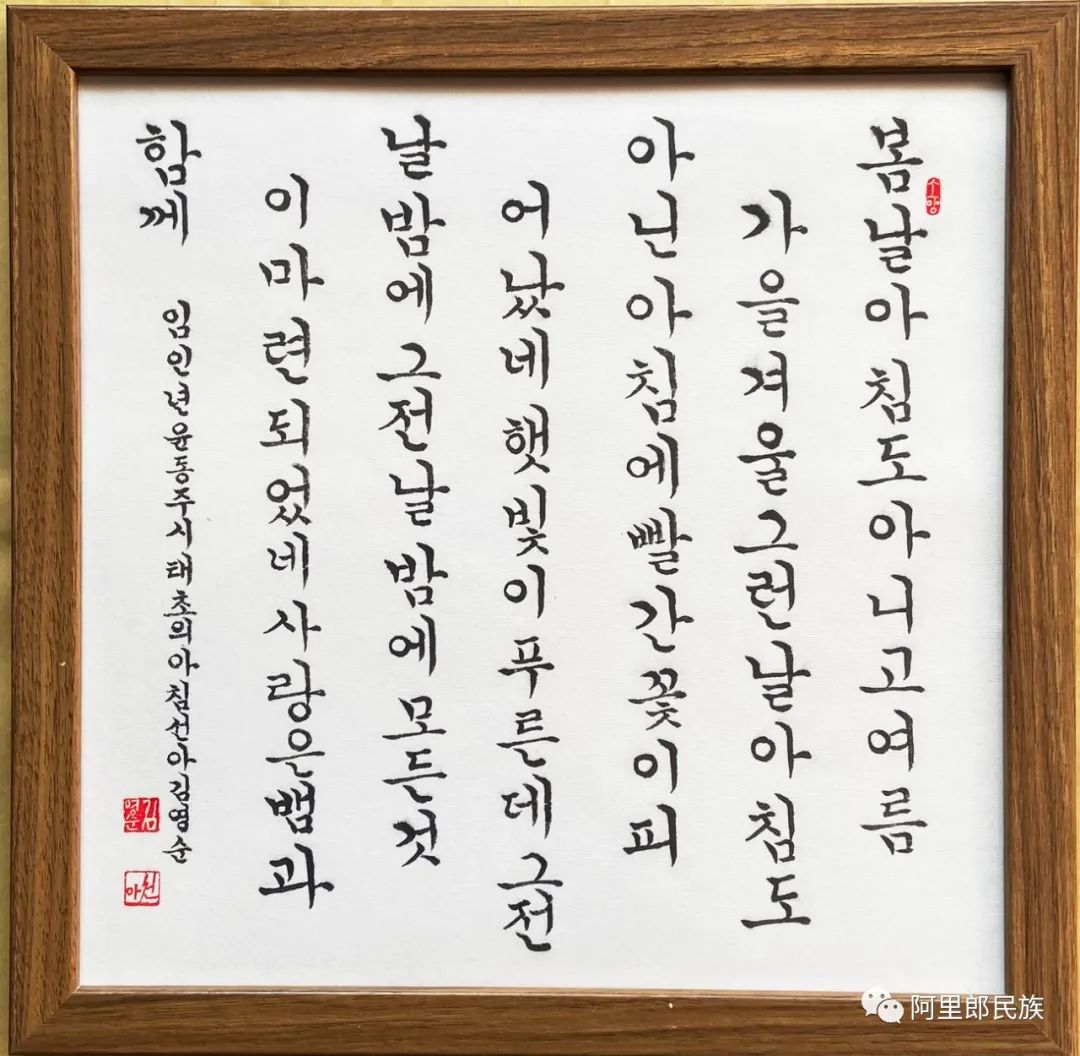 봄날아침도아니고여름
가을겨울그런날아침도
아닌아침에빨간꽃이피
어났네햇빛이푸른데그전
날밤에그전날밤에모든것
이마련되었네사랑은뱀과
함께
임인년윤동주시태초의아침선아김영순
김영순
阿里郎民族